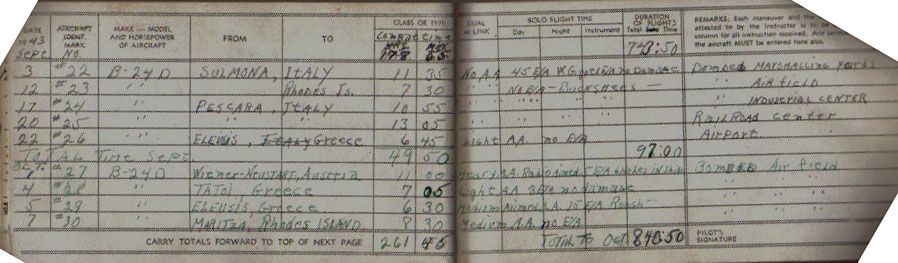 DATE 1943 AIRCRAFT IDENT. MARK No. MAKE — MODEL AND HORSEPOWER OF AIRCRAFT FROM TO CLASS OR TYPE Combat time DUAL or LINK SOLO FLIGHT TIME Day Night Instrument DURATION OF FLIGHTS Total Solo Time REMARKS: Each maneuver and the
attested to by the Instructor is to be
column for all instruction received. Any
the aircraft MUST be entered here also.
Sept. 743:50
3 #22 B-24D SULMONA, ITALY 11 35 No AA 45 E/A no Damage Bombed MARSHALLING Yards
12 #23 " " Rhodes Is. 7 30 No E/A - — Airfield
17 #24 " " PESCARA, ITALY 10 55 INDUSTRIAL CENTER
20 #25 " " " " 13 05 RAILROAD center
22 #26 " " ELEUSIS, ITALY Greece 6 45 Light AA no E/A Airport
TOTAL Time Sept. 49 50 97:00
Oct. 1 #27 B-24D Wiener-Neustadt, Austria 11 00 Heavy AA Bombed Airfield
4 #28 " " TATOI Greece 7 05 Light AA E/A no Damage
5 #29 " " ELEUSIS, Greece 6 30 Medium 15 E/A Rough
7 #30 " " MARITZA, Rhodes ISLAND 30 Medium AA no E/A
CARRY TOTALS FORWARD TO TOP OF NEXT PAGE 261 45 TOTAL To Oct 840:50 PILOT'S SIGNATURE